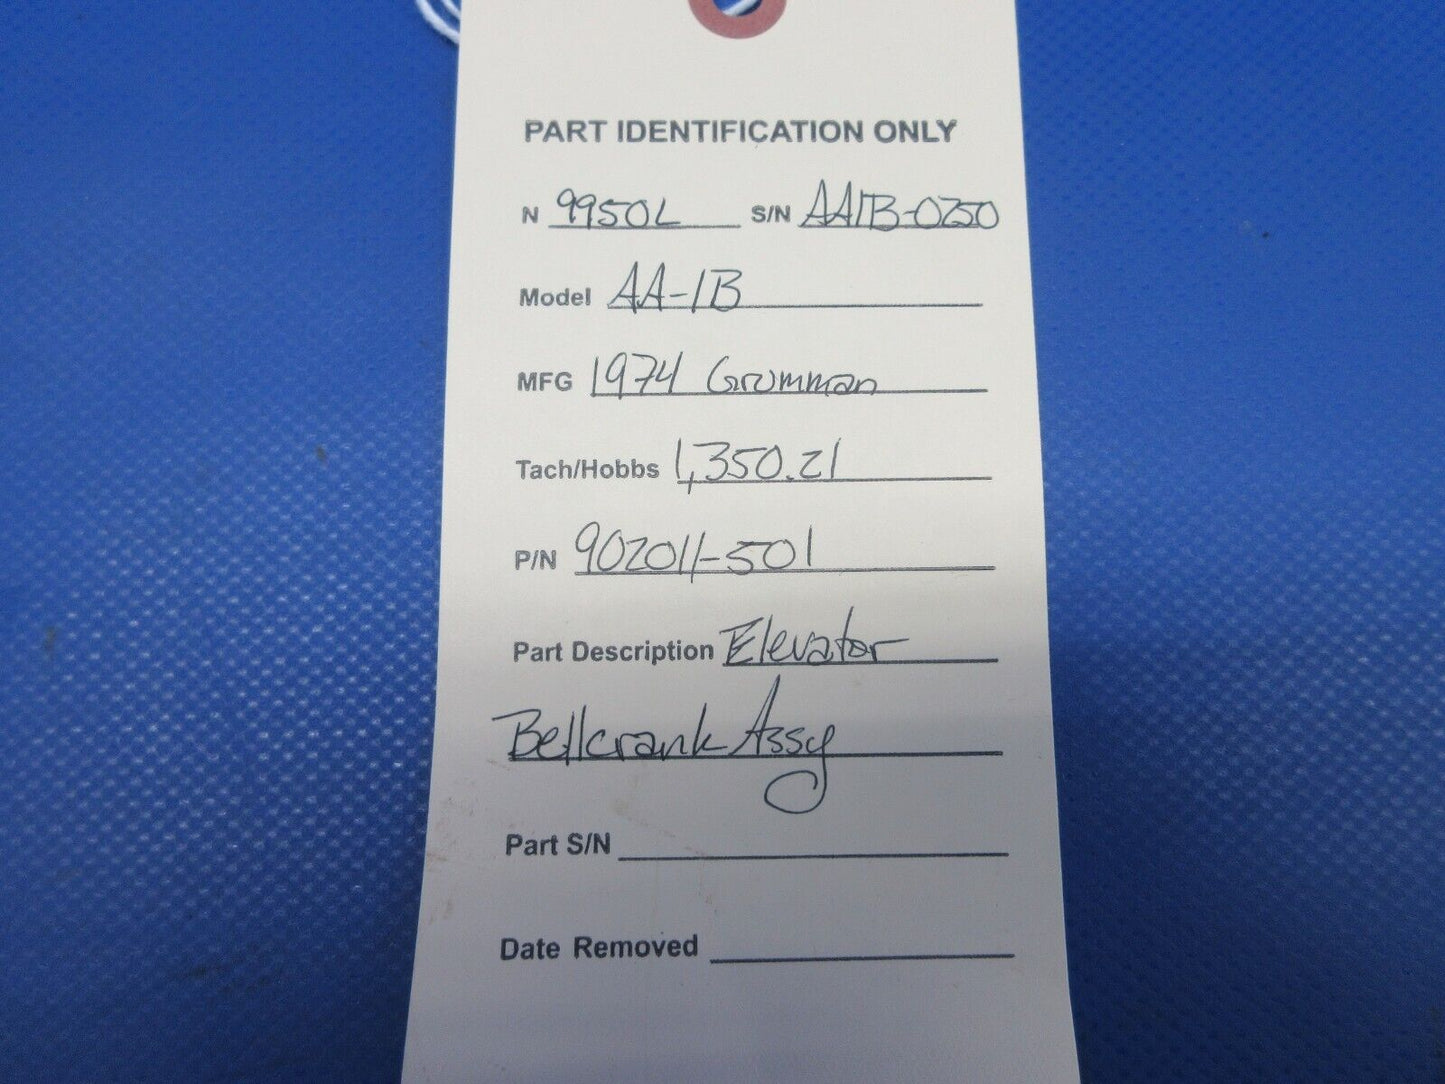 PART IDENTIFICATION ONLY
N 9950L S/N AA1B-0250
Model AA-1B
MFG 1974 Grumman
Tach/Hobbs 1,350.21
P/N 902011-501
Part Description Elevator
Bellcrank Assy
Part S/N
Date Removed